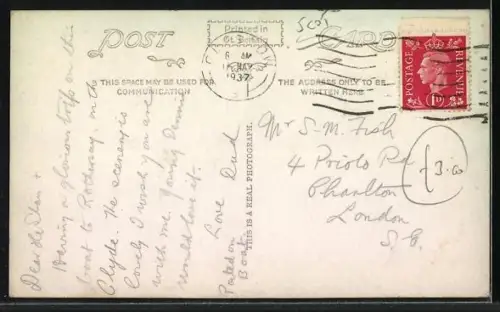 POST CARD
Printed in
Gt. Britain
5 AM
MAY
1937
POSTAGE
REVENUE
1D
THIS SPACE MAY BE USED FOR
COMMUNICATION
THE ADDRESS ONLY TO BE
WRITTEN HERE
Dear Helen +
Having a glorious trip on this
boat to Rothesay, on the
Clyde. The scenery is
lovely I wish you were
with me. Young Dennis
would love it.
Love Dad
Posted on
Boat
THIS IS A REAL PHOTOGRAPH.
Mr S. M. Fish
4 Priolo Rd
Charlton
London
S.E.
3.60